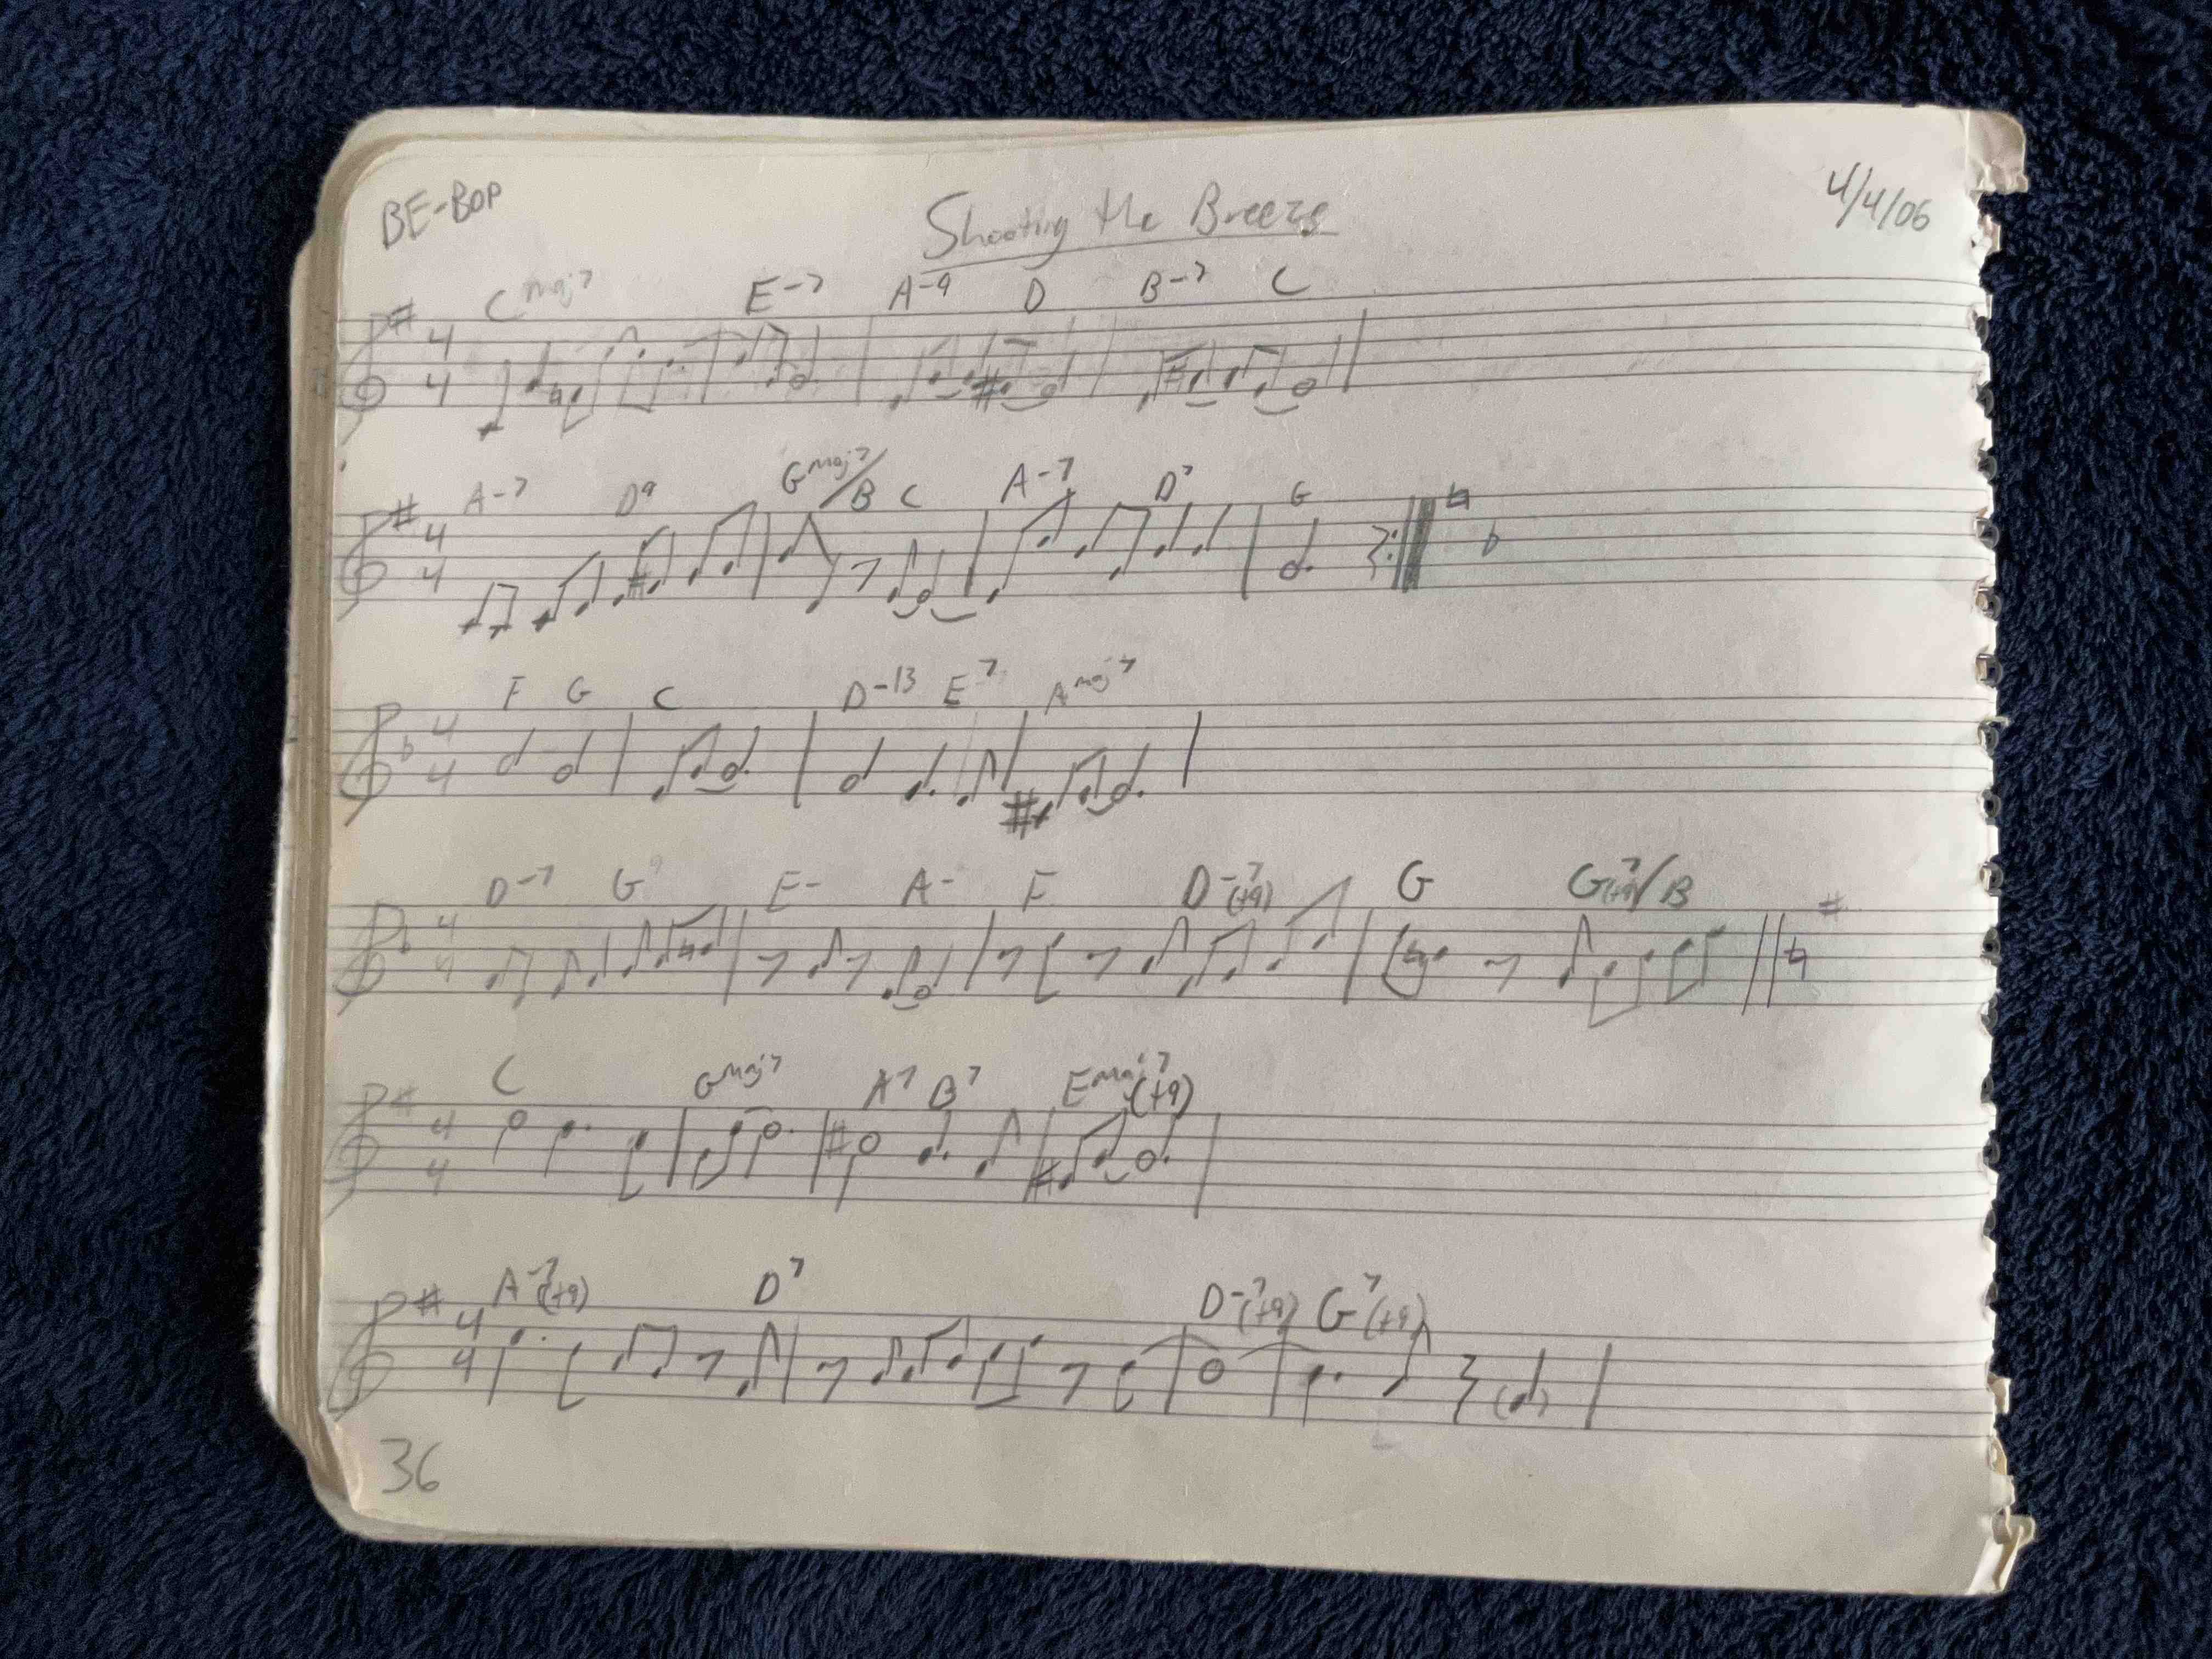 BE-BOP Shooting the Breeze 4/4/06
Cmaj7 E-7 A-9 D B-7 C
4
4
A-7 D9 Gmaj7/B C A-7 D7 G
4
4
F G C D-13 E7 Amaj7
4
4
D-7 G9 E- A- F D-7(+9) G G7(+9)/B
4
4
C Gmaj7 A7 B7 Emaj7(+9)
4
4
A-7(+9) D7 D-7(+9) G7(+9)
4
4
36